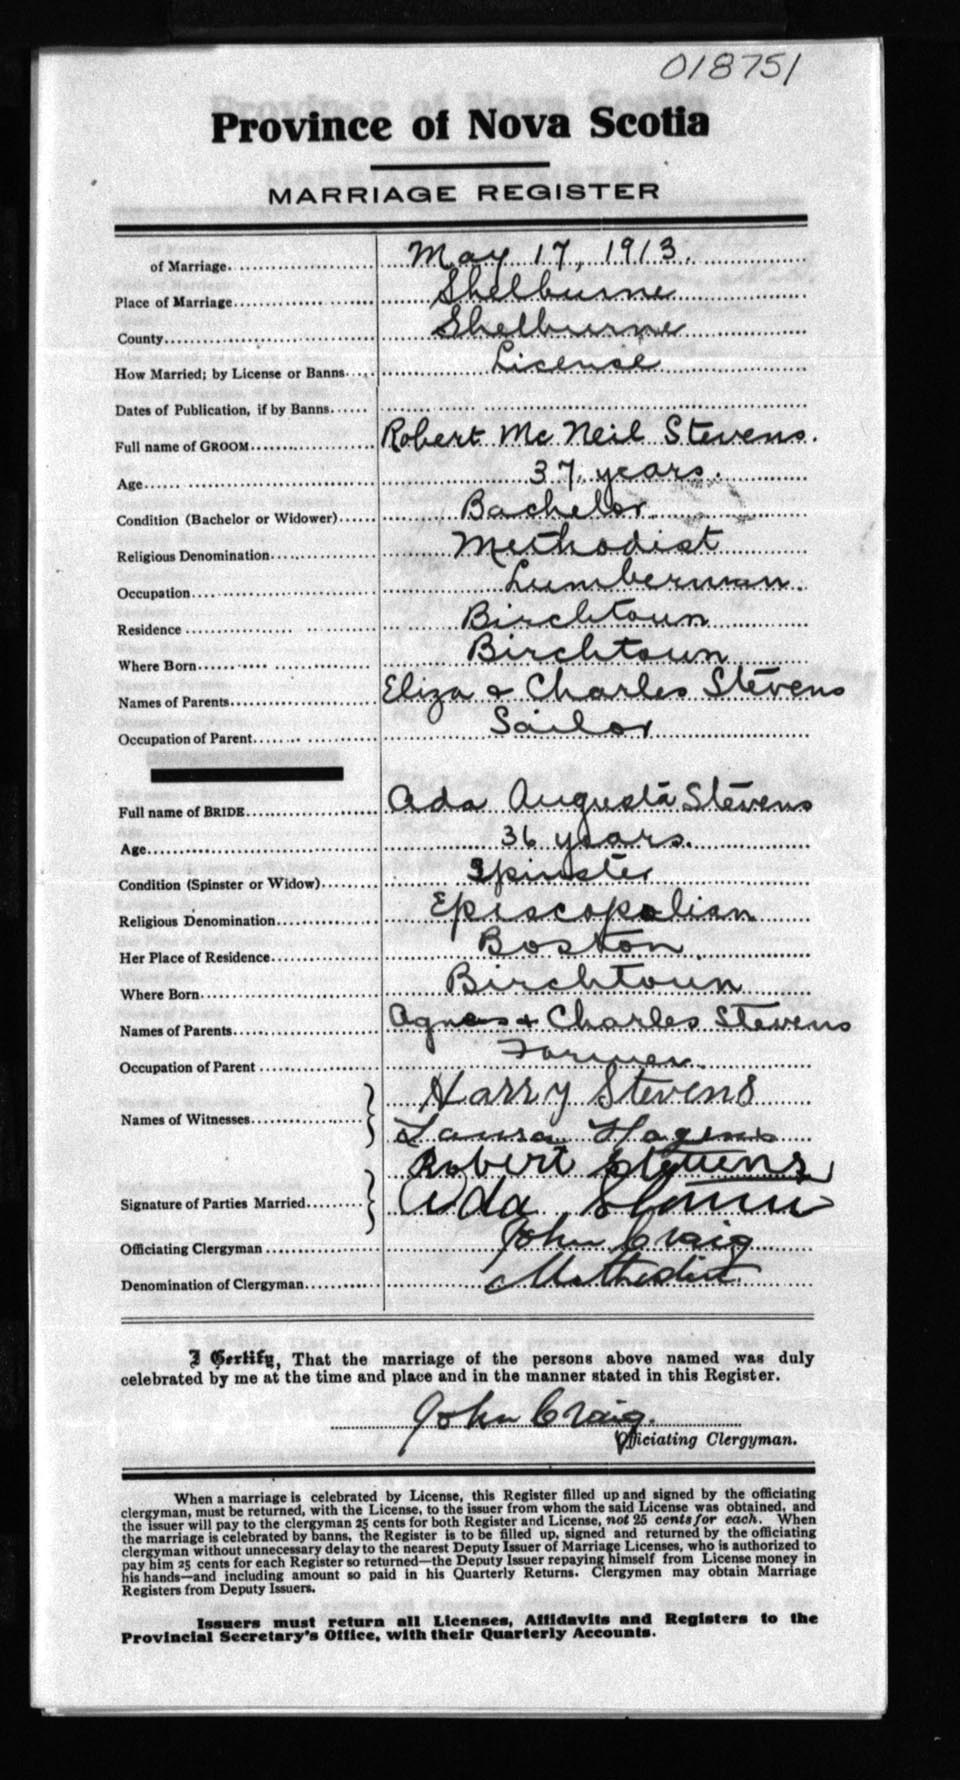 018751
Province of Nova Scotia
MARRIAGE REGISTER
of Marriage. May 17, 1913.
Place of Marriage Shelburne
County Shelburne
How Married; by License or Banns License
Dates of Publication, if by Banns
Full name of GROOM Robert McNeil Stevens.
Age 37 years.
Condition (Bachelor or Widower) Bachelor
Religious Denomination Methodist
Occupation Lumberman.
Residence Birchtown
Where Born Birchtown
Names of Parents Eliza & Charles Stevens
Occupation of Parent Sailor
Full name of BRIDE Ada Augusta Stevens
Age 36 years.
Condition (Spinster or Widow) Spinster
Religious Denomination Episcopalian
Her Place of Residence Boston
Where Born Birchtown
Names of Parents Agnes & Charles Stevens
Occupation of Parent Farmer
Names of Witnesses Harry Stevens
Laura
Signature of Parties Married Robert Stevens
Ada
Officiating Clergyman John Craig
Denomination of Clergyman Methodist
I Certify, That the marriage of the persons above named was duly
celebrated by me at the time and place and in the manner stated in this Register.
John Craig.
Officiating Clergyman.
When a marriage is celebrated by License, this Register filled up and signed by the officiating
clergyman, must be returned, with the License, to the issuer from whom the said License was obtained, and
the issuer will pay to the clergyman 25 cents for both Register and License, not 25 cents for each. When
the marriage is celebrated by banns, the Register is to be filled up, signed and returned by the officiating
clergyman without unnecessary delay to the nearest Deputy Issuer of Marriage Licenses, who is authorized to
pay him 25 cents for each Register so returned—the Deputy Issuer repaying himself from License money in
his hands—and including amount so paid in his Quarterly Returns. Clergymen may obtain Marriage
Registers from Deputy Issuers.
Issuers must return all Licenses, Affidavits and Registers to the
Provincial Secretary's Office, with their Quarterly Accounts.